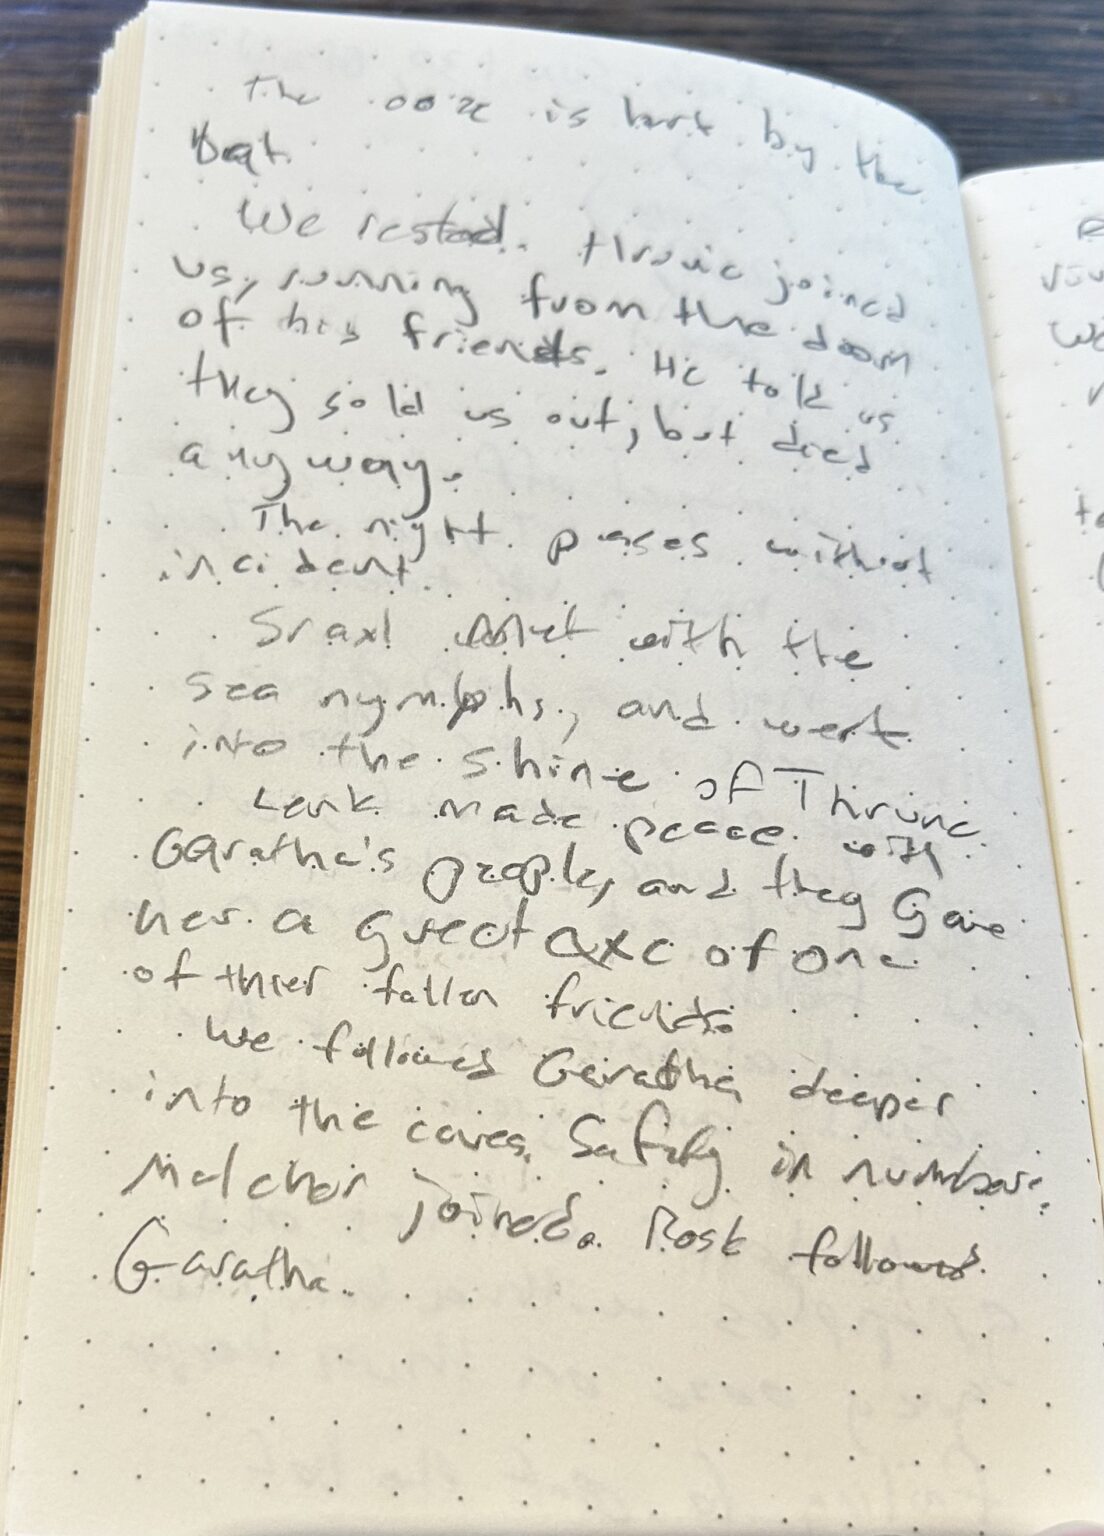 The ooze is hurt by the
bat.
We rested. Thrunc joined
us, running from the doom
of his friends. He told us
they sold us out, but died
anyway.
The night passes without
incident.
Sraxl met with the
sea nymphs, and went
into the shine of Thrunc.
Lenk made peace with
Garatha's people, and they gave
her a great axe of one
of thier fallen friends.
We followed Garatha deeper
into the caves. Safety in numbers.
Malchor joined. Rosk followed
Garatha.